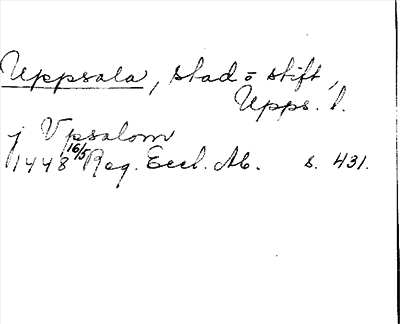 Uppsala, stad o stift,
Upps. l.
j Vpsalom
1448 16/5 Reg. Eccl. Ab. s. 431.